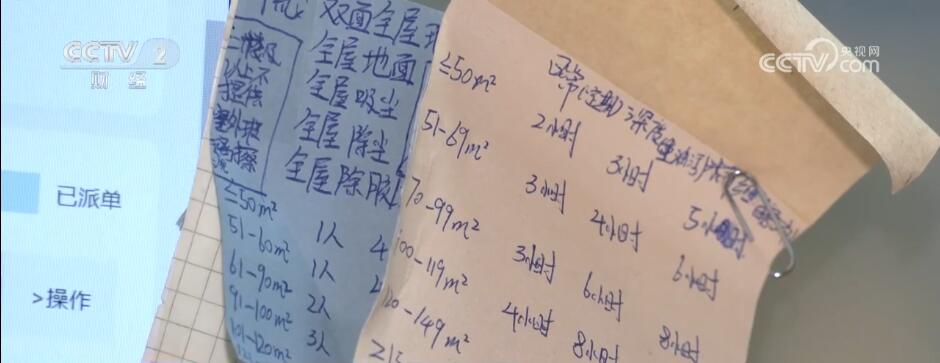 CCTV 2
财经
央视网
CCTV.com
已派单
>操作
双面全屋
全屋地面
全屋吸尘
全屋除尘
全屋除胶
二楼及
以上不
提供
室外玻
璃擦
≤50m²
51-60m² 1人 4
61-90m² 2人
91-100m² 3人
101-120m²
日常(定期) 深度 重油污
≤50m² 2小时 3小时 5小时
51-69m² 3小时 4小时 6小时
70-99m² 3小时 6小时 8小时
100-119m² 4小时 8小时
120-149m²